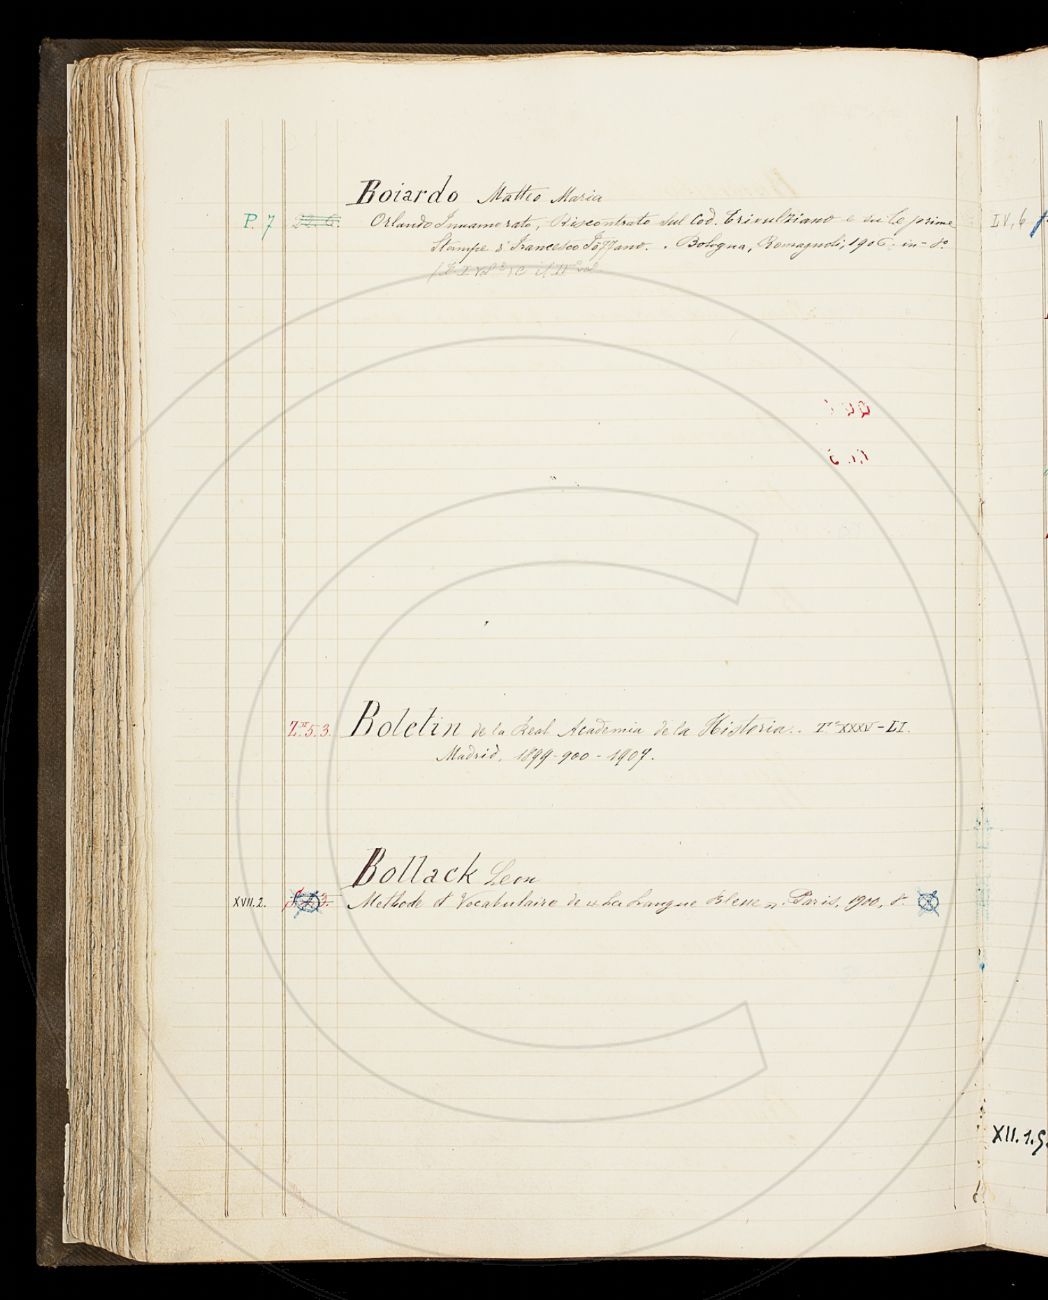 Boiardo Matteo Maria
P. 7 Orlando Innamorato, Riscontrato sul Cod. Trivulziano e su le prime
Stampe d' Francesco Foffano. . Bologna, Romagnoli, 1906. in-8º
IV, 6
Z.II.5.3. Boletin de la Real Academia de la Historia. Tº XXXV-LI.
Madrid, 1899-900-1907.
Bollack Leon
XVII.2. Methode et Vocabulaire de « La Langue Bleue ». Paris, 1900, 8º
XII.1.9